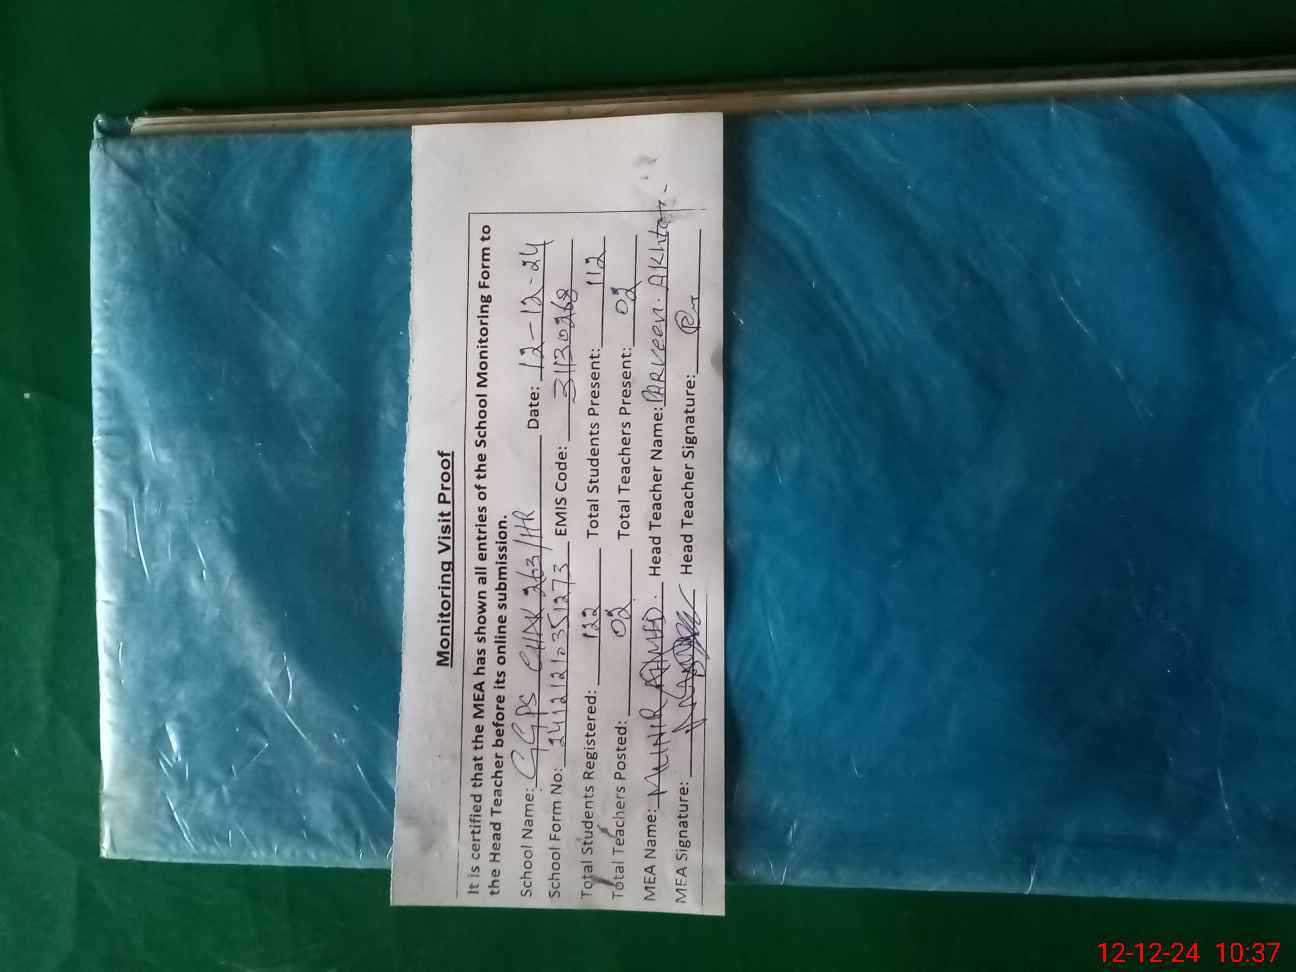 Monitoring Visit Proof
It is certified that the MEA has shown all entries of the School Monitoring Form to
the Head Teacher before its online submission.
School Name: GGPS CHAK 263/HR Date: 12-12-24
School Form No: 24121210351273 EMIS Code: 31130268
Total Students Registered: 122 Total Students Present: 112
Total Teachers Posted: 02 Total Teachers Present: 02
MEA Name: MUNIR AHMED. Head Teacher Name: PARVEEN. AKhtar.
MEA Signature: Head Teacher Signature:
12-12-24 10:37